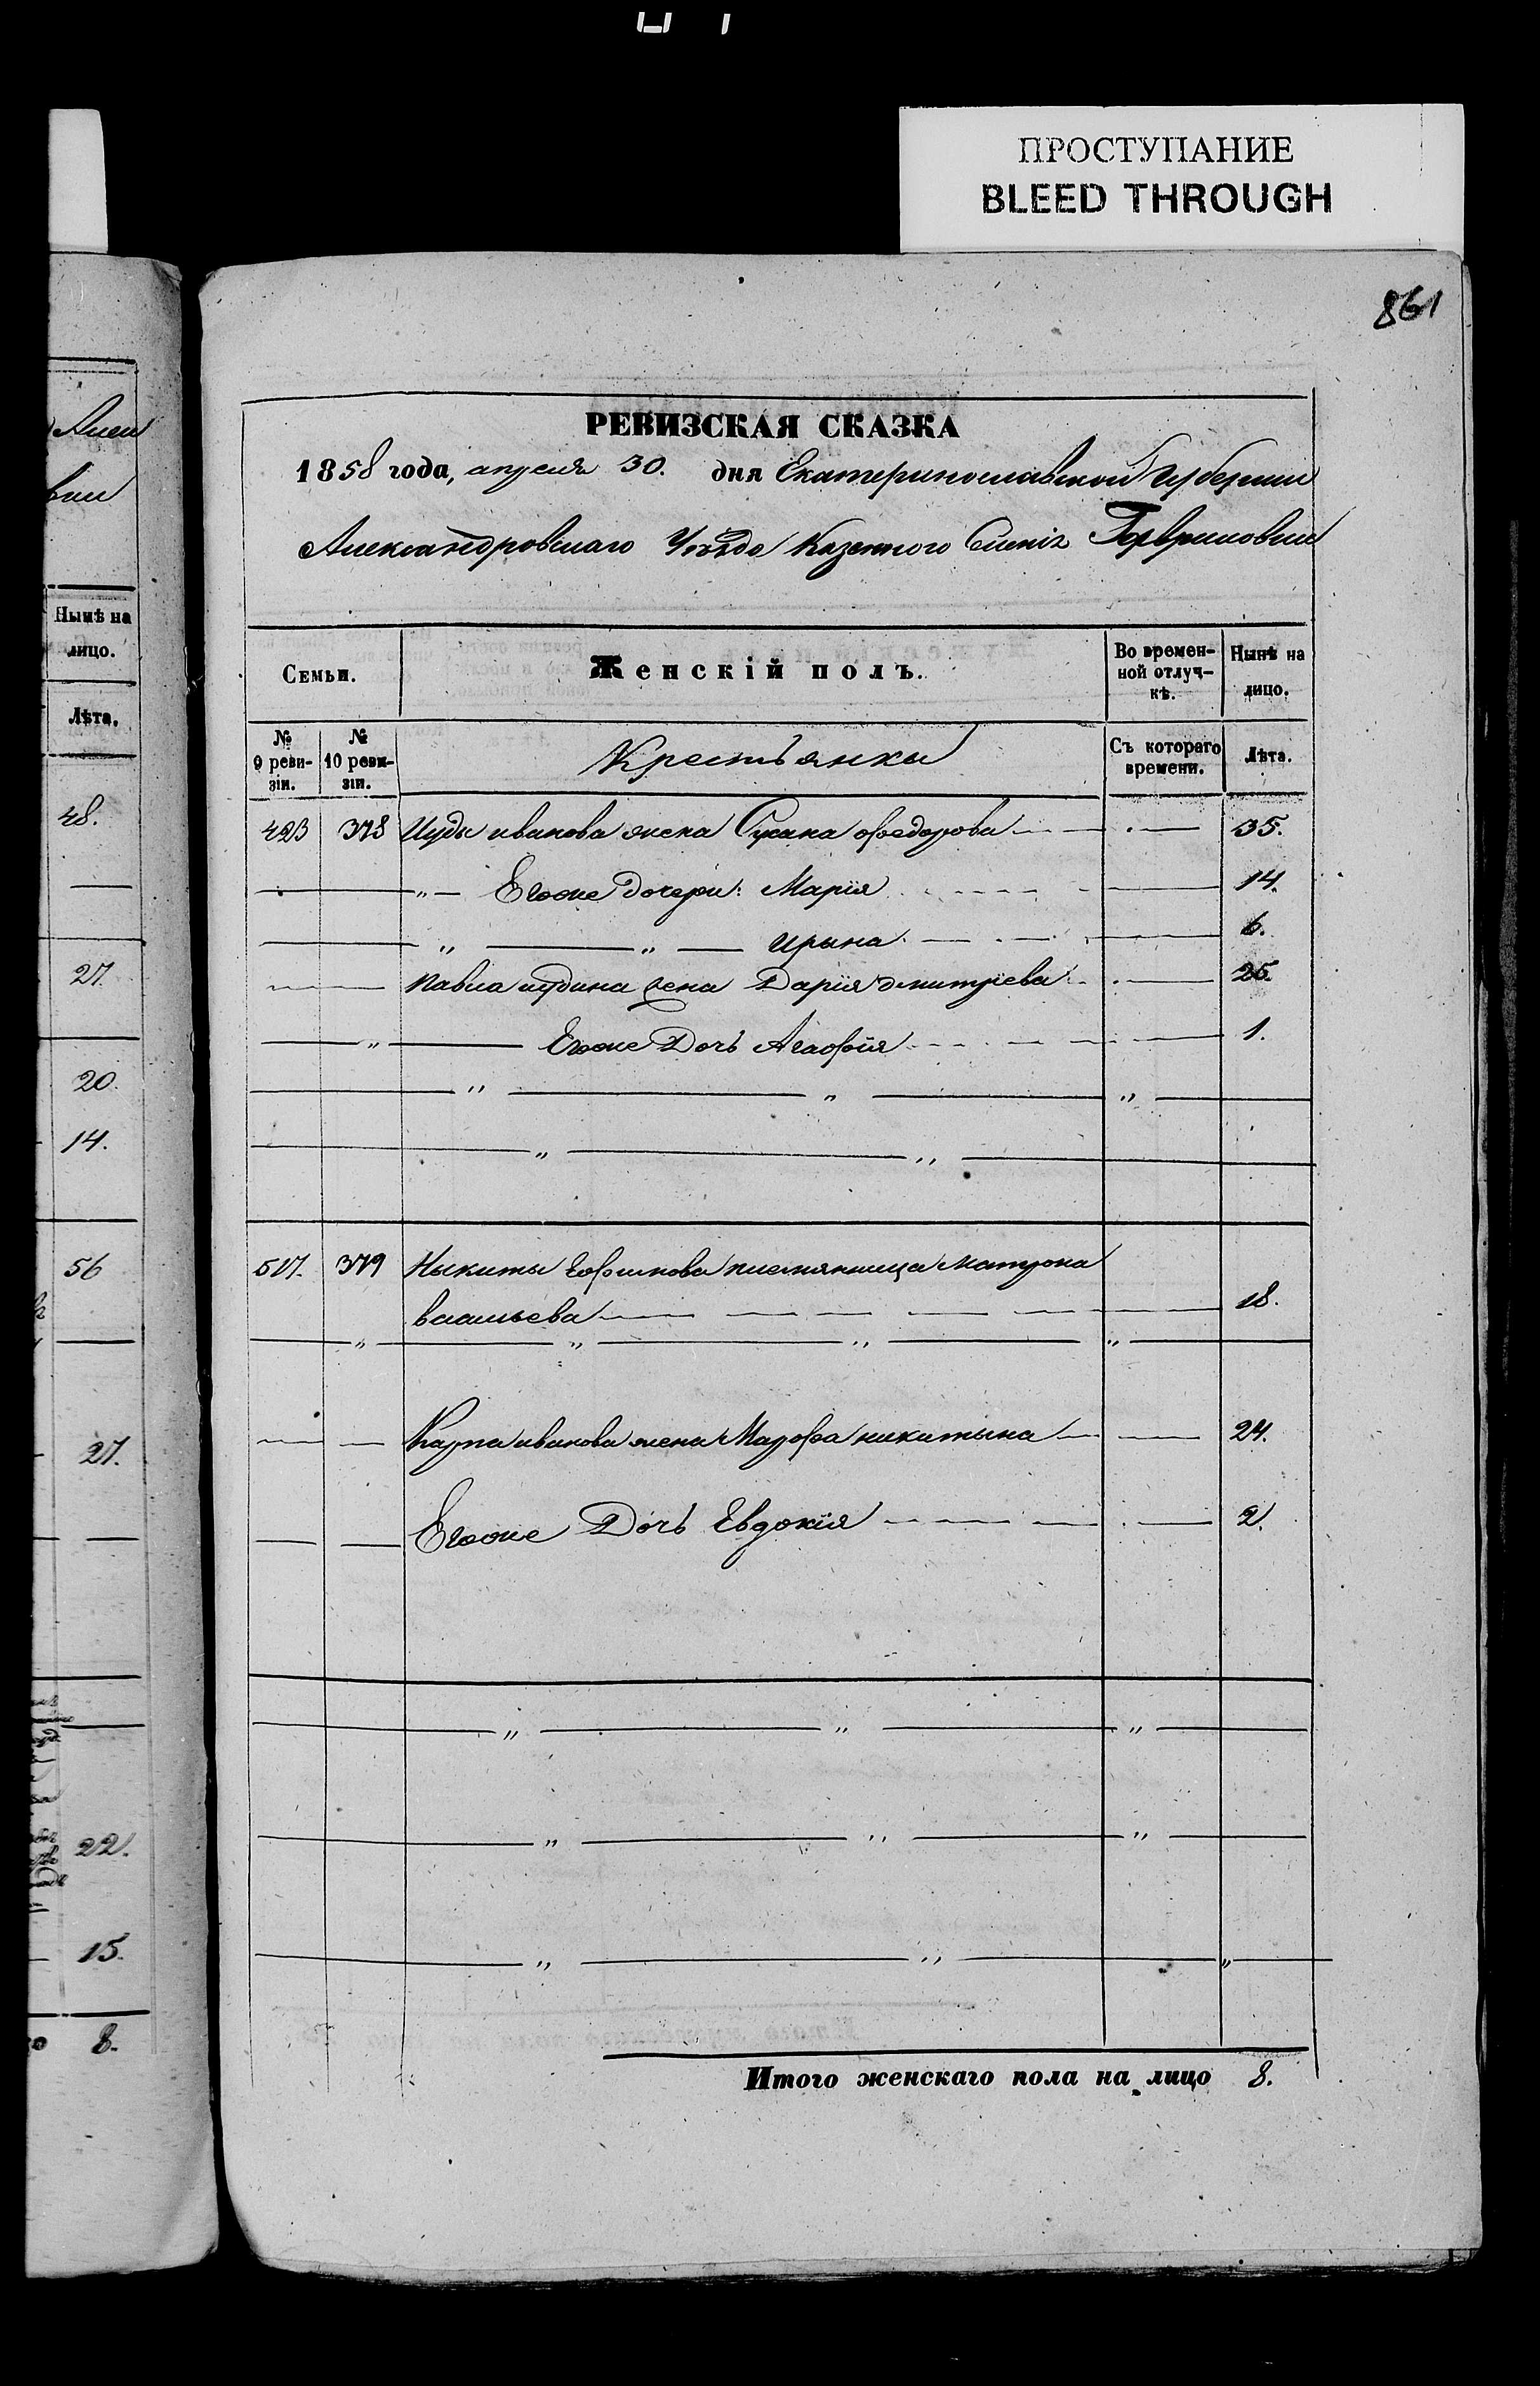 ПРОСТУПАНИЕ
BLEED THROUGH
861
РЕВИЗСКАЯ СКАЗКА
1858 года, апреля 30. дня Екатеринославской Губернии
Александровскаго Уѣзда Казенного Селенія Гавриловки
Семьи. Женскій полъ. Во времен- Нынѣ на
ной отлуч- лицо.
кѣ.
№ № Крестьянки Съ котораго Лѣта.
9 реви- 10 реви- времени.
зіи. зіи.
423 378 Иуды иванова жена Сусана ѳедорова 35.
" Егоже Дочери: Марія 14.
" " Ирына 6.
Павла иудина жена Дарія дмитріева 25.
" Егоже Дочь Агафія 1.
" " "
" "
517. 379 Никиты племянница Матрона
васильева 18.
" " " "
Карпа иванова жена Марфа никитына 24.
Егоже Дочь Евдокія 2.
" " "
" " "
" " "
Итого женскаго пола на лицо 8.
Нынѣ на
лицо.
Лѣта.
48.
27.
20.
14.
56
27.
22.
15.
8.